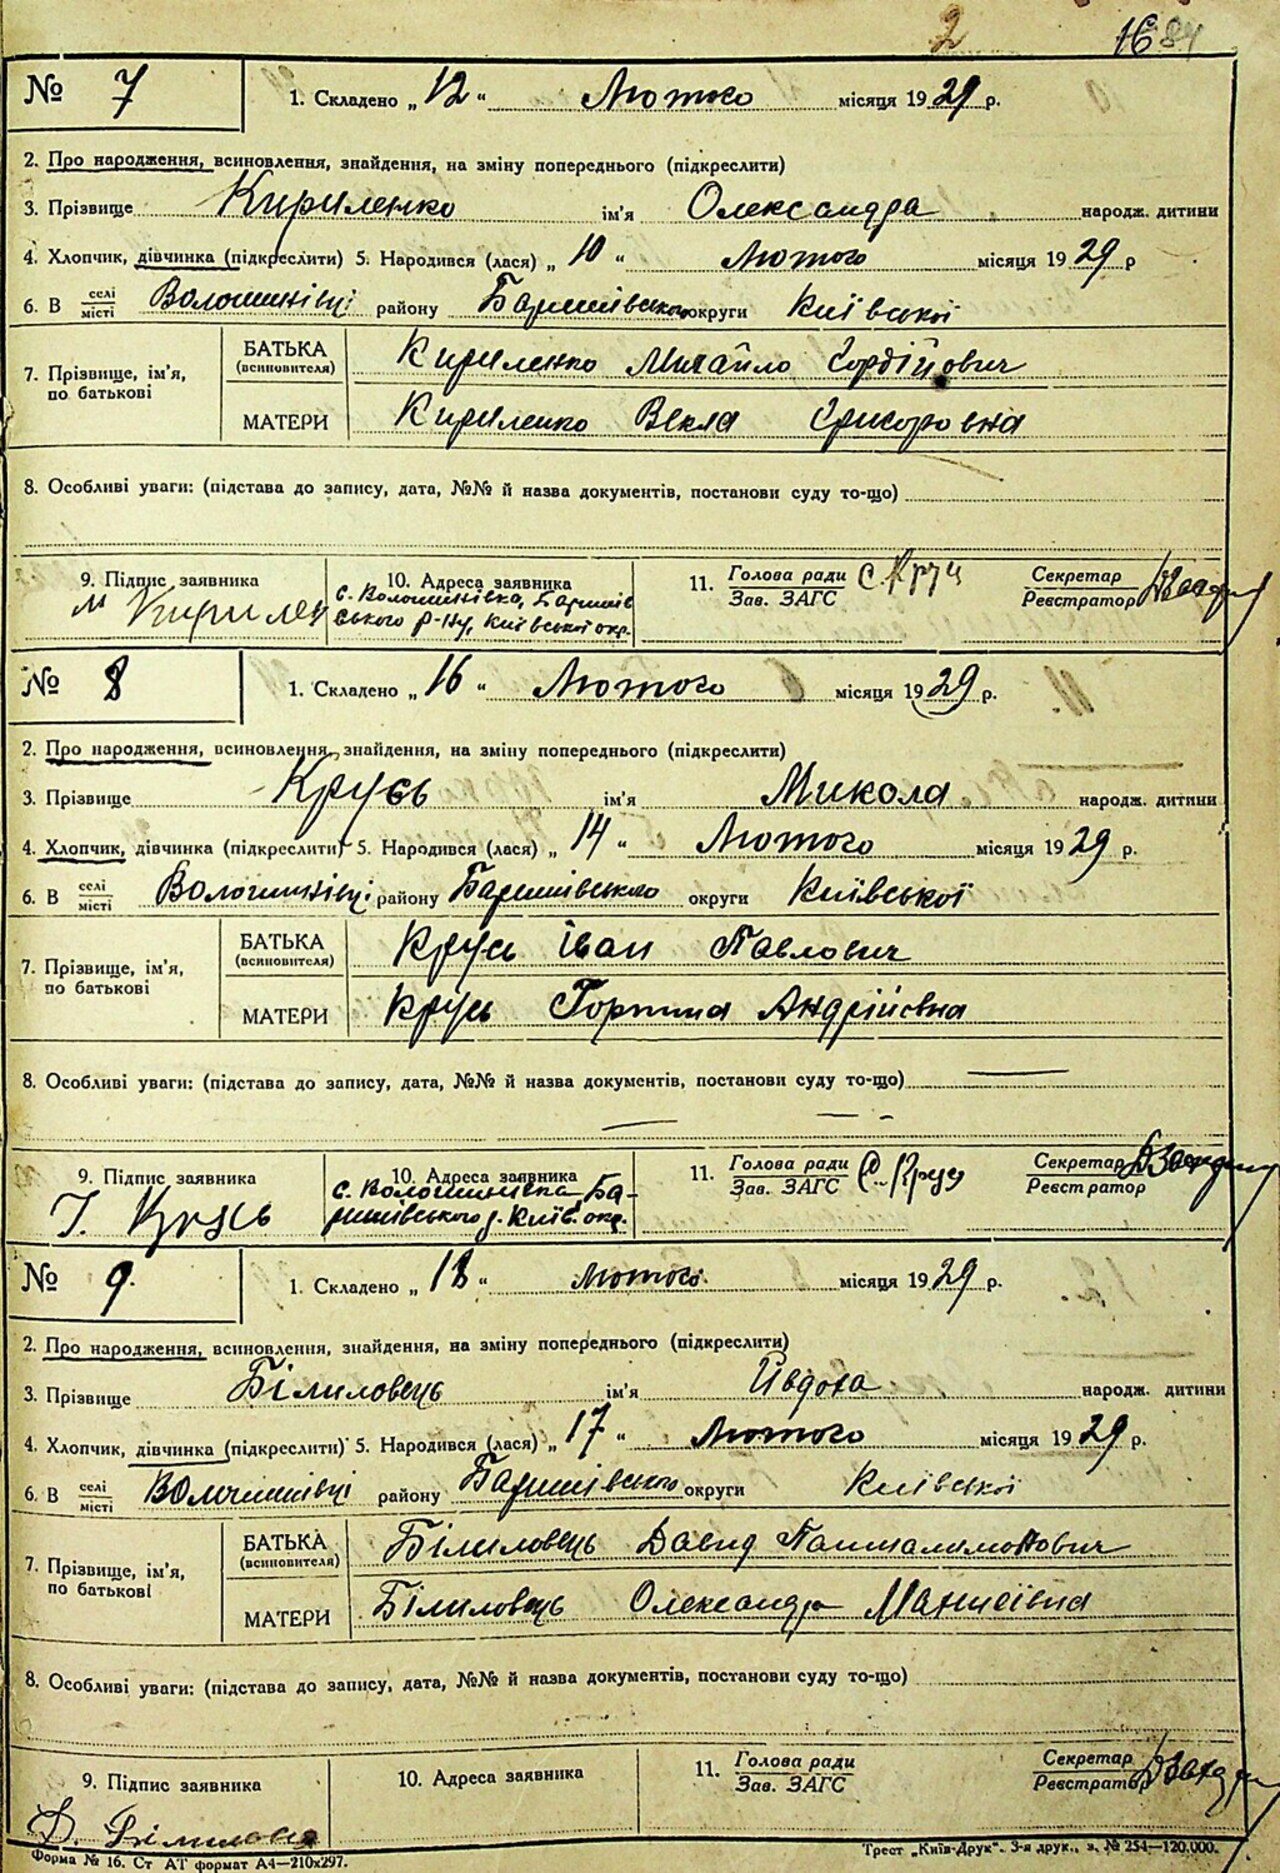 2 16 84
№ 7 1. Складено „ 12 “ Лютого місяця 1929 р.
2. Про народження, всиновлення, знайдення, на зміну попереднього (підкреслити)
3. Прізвище Кириленко ім'я Олександра народж. дитини
4. Хлопчик, дівчинка (підкреслити) 5. Народився (лася) „ 10 “ Лютого місяця 1929 р
6. В селі місті Волошинівці району Баришівського округи Київської
7. Прізвище, ім'я, по батькові БАТЬКА (всиновителя) Кириленко Михайло Гордійович
МАТЕРИ Кириленко Векла Григоровна
8. Особливі уваги: (підстава до запису, дата, №№ й назва документів, постанови суду то-що)
9. Підпис заявника 10. Адреса заявника 11. Голова ради Зав. ЗАГС Секретар Реєстратор
М Кирилен с. Волошинівка, Баришів
ського р-ну, Київської окр.
№ 8 1. Складено „ 16 “ Лютого місяця 1929 р.
2. Про народження, всиновлення, знайдення, на зміну попереднього (підкреслити)
3. Прізвище Крусь ім'я Микола народж. дитини
4. Хлопчик, дівчинка (підкреслити) 5. Народився (лася) „ 14 “ Лютого місяця 1929 р.
6. В селі місті Волошинівці району Баришівського округи Київської
7. Прізвище, ім'я, по батькові БАТЬКА (всиновителя) Крусь Іван Павлович
МАТЕРИ Крусь Горпина Андрійовна
8. Особливі уваги: (підстава до запису, дата, №№ й назва документів, постанови суду то-що)
9. Підпис заявника 10. Адреса заявника 11. Голова ради Зав. ЗАГС Секретар Реєстратор
І. Крусь с. Волошинівка Ба-
ришівського р. Київ. окр.
№ 9. 1. Складено „ 18 “ лютого. місяця 1929 р.
2. Про народження, всиновлення, знайдення, на зміну попереднього (підкреслити)
3. Прізвище Білиловець ім'я Ивдоха народж. дитини
4. Хлопчик, дівчинка (підкреслити) 5. Народився (лася) „ 17 “ Лютого місяця 1929 р.
6. В селі місті Волошинівці району Баришівського округи Київської
7. Прізвище, ім'я, по батькові БАТЬКА (всиновителя) Білиловець Давид Панталимонович
МАТЕРИ Білиловець Олександра
8. Особливі уваги: (підстава до запису, дата, №№ й назва документів, постанови суду то-що)
9. Підпис заявника 10. Адреса заявника 11. Голова ради Зав. ЗАГС Секретар Реєстратор
Д. Білиловец
Форма № 16. Ст АТ формат А4—210х297. Трест „Київ-Друк“. 3-я друк., з. № 254—120.000.